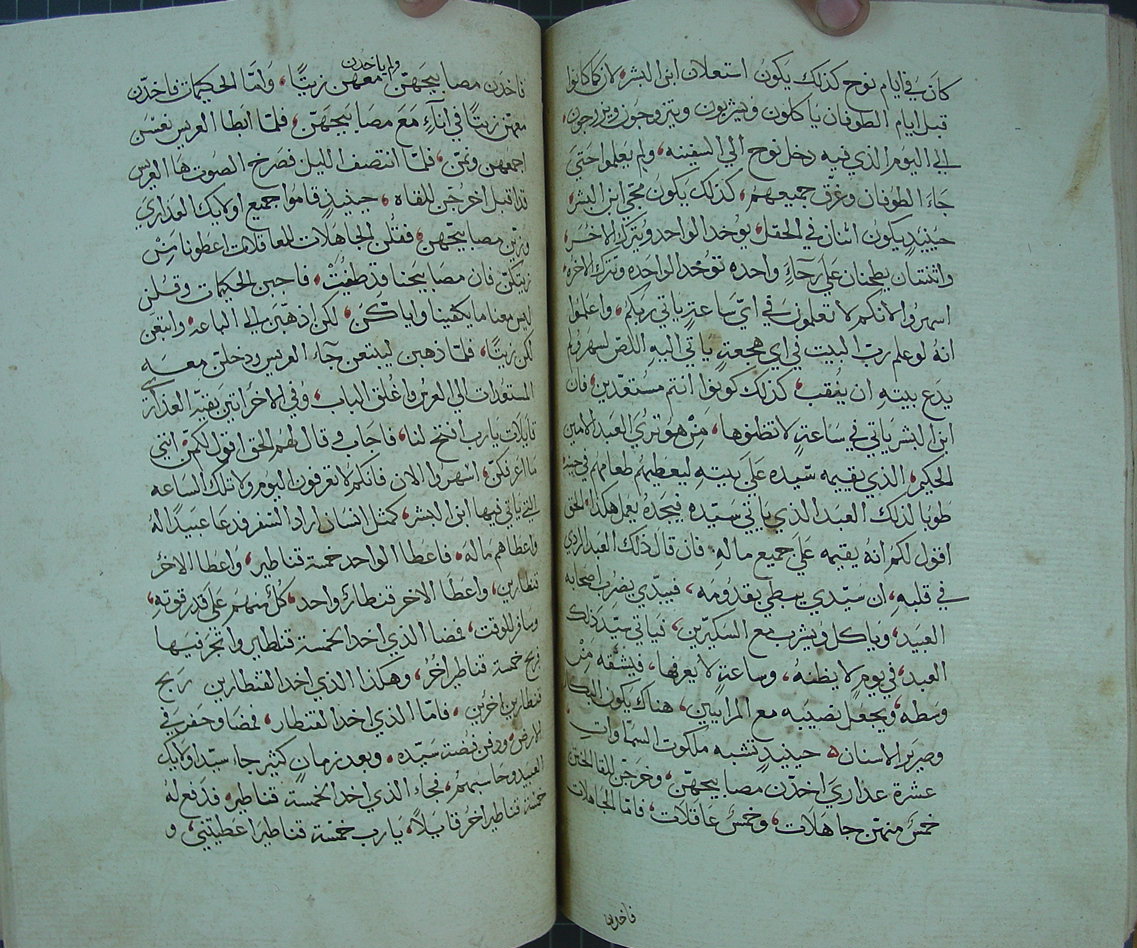 كانَ في ايام نوح كذلك يكونُ استعلان ابن البشر، لان كما كانوا
قبل ايام الطوفان ياكلون ويشربون ويتزوجون ويزوجون
الي اليوم الذي فيه دخل نوح الي السفينه، ولم يعلموا حتي
جاءَ الطوفان وغرق جميعهم، كذلك يكونُ مجي ابن البشر،
حينيدٍ يكون اثنان في الحقل، يوخد الواحد ويترك الاخر،
واثنتان يطحنان علي رحاءٍ واحده توخد الواحده وتترك الاخره
اسهروا لانكم لا تعلمون في ايّ ساعةٍ ياتي ربكم، واعلموا
انهُ لو علم ربّ البيت في اي هجعةٍ ياتي اليه اللص لسهر ولم
يدع بيته ان ينقب، كذلك كونوا انتم مستعدّين، فان
ابن البشر ياتي في ساعةٍ لا تظنوها، من هو تري العبد الامين
الحكيم، الذي يقيمه سيّده علي بيته ليعطيهم طعامهم في حينه
طوبا لذلك العبد الذي ياتي سيّده فيجدهُ يعمل هكذا الحق
اقول لكم انهُ يقيمه علي جميع ماله، فان قال ذلك العبد الردي
في قلبهِ، ان سيّدي يبطي بقدومه، فيبدّي يضرب اصحابه
العبيد، وياكل ويشرب مع السكيرين، فياتي سيّد ذلك
العبد، في يومٍ لا يظنهُ، وساعةٍ لا يعرفها، فيشقه من
وسطه، ويجعل نصيبه مع المراييين، هناك يكون البكاء
وصرير الاسنان، حينيدٍ تشبه ملكوت السماوات
عشرة عداري اخدّن مصابيحهّن، وخرجّن للقا الختن
خمسٌ منهّن جاهلات، وخمسٌ عاقلات، فاما الجاهلات
فاخدن
ولم ياخدن
فاخدن مصابيحهّن معهن زيتًا، وامّا الحكيمات فاخدّن
معهّن زيتًا في اناءٍ مَعَ مصابيحهّن، فلمّا ابطا العريس نعسن
اجمعهن ونمّن، فلمّا انتصف الليل فصرخ الصوت ها العريس
قد اقبل اخرجّن للقاه، حينيذٍ قاموا جميع اولايك العداري
وزيّن مصابيحّهن، فقلّن الجاهلات للعاقلات اعطونا من
زيتكنّ فان مصابيحنا قد طفيت، فاجبن الحكيمات وقلن
ليس معنا ما يكفينا واياكّن، لكن ادهبّن الي الباعه، وابتعن
لكن زيتًا، فلمّا دهبن ليبتعن جاءَ العريس ودخلّن معه
المستعدات الي العرس واُغلق الباب، وفي الاخر اتين بقية العذاري
قايلات يارب افتح لنا، فاجاب وقال لهم الحق اقول لكمّن انني
ما اعرفكّن، اسهروا الان فانكم لا تعرفون اليوم ولا تلك الساعه
التي ياتي فيها ابن البشر، كمثل انسان اراد السفر ودعا عبيدًا لهُ
واعطاهم ماله، فاعطا الواحد خمسة قناطير، واعطا الاخر
قنطارين، واعطا الاخر قنطارً واحد، كلٌ منهم علي قدر قوته،
وسافر للوقت، فمضا الذي اخد الخمسة قناطير واتجر فيها
فربح خمسة قناطير اخرُ، وهكذا الذي اخد القنطارين ربح
قنطارين اخرين، فامّا الذي اخد القنطار، فمضا وحفر في
الارض ودفن فضة سيّده، وبعد زمانٍ كثير جاءَ سيّد اولايك
العبيد وحاسبهم، فجاءَ الذي اخد الخمسة قناطير، فدفع له
خمسة قناطير اخر قايلاً، يارب خمسّة قناطير اعطيتني، و